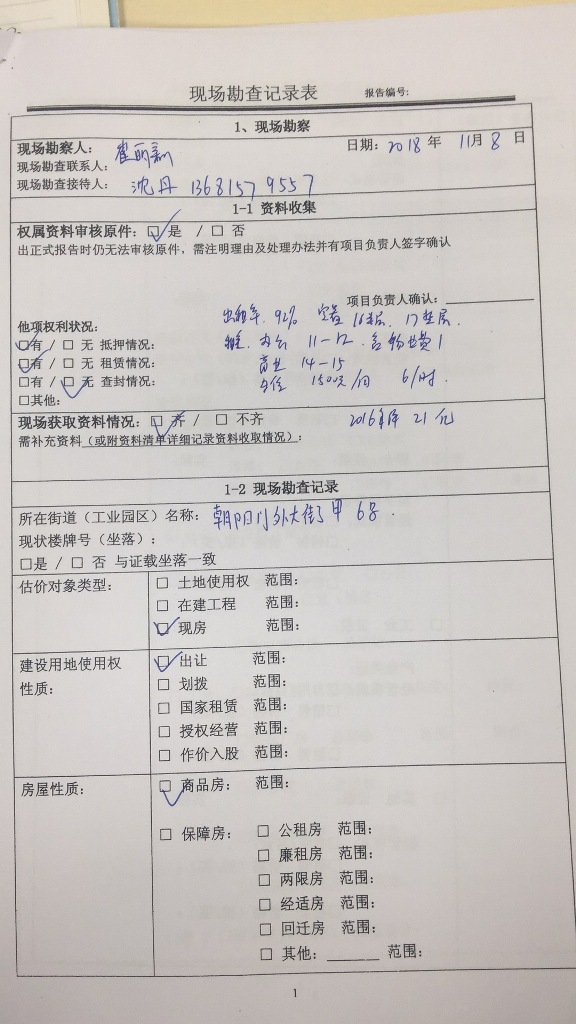 现场勘查记录表 报告编号:
1、现场勘察
现场勘察人: 崔丽新 日期: 2018年 11月 8 日
现场勘查联系人:
现场勘查接待人: 沈丹 13681579557
1-1 资料收集
权属资料审核原件: ☑ 是 / □ 否
出正式报告时仍无法审核原件,需注明理由及处理办法并有项目负责人签字确认
项目负责人确认:
出租率. 92% 空置 16整层. 17整层.
他项权利状况:
办公 11-12. 含物业费1
☑有 / □ 无 抵押情况:
☑有 / □ 无 租赁情况:
商业 14-15
□有 / ☑ 无 查封情况:
车位 1500元/月 6/时.
□其他:
现场获取资料情况: ☑ 齐 / □ 不齐 2016年 21元
需补充资料(或附资料清单详细记录资料收取情况):
1-2 现场勘查记录
所在街道(工业园区)名称: 朝阳门外大街甲6号.
现状楼牌号(坐落):
□是 / □ 否 与证载坐落一致
估价对象类型: □ 土地使用权 范围:
□ 在建工程 范围:
☑ 现房 范围:
建设用地使用权性质: ☑ 出让 范围:
□ 划拨 范围:
□ 国家租赁 范围:
□ 授权经营 范围:
□ 作价入股 范围:
房屋性质: ☑ 商品房: 范围:
□ 保障房: □ 公租房 范围:
□ 廉租房 范围:
□ 两限房 范围:
□ 经适房 范围:
□ 回迁房 范围:
□ 其他:______ 范围:
1